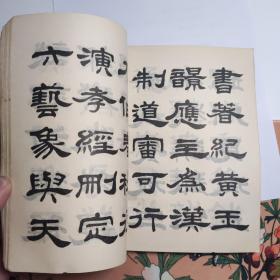 書著紀黃玉
䪫應主為漢
制道審可行
演孝經刪定
六藝象與天